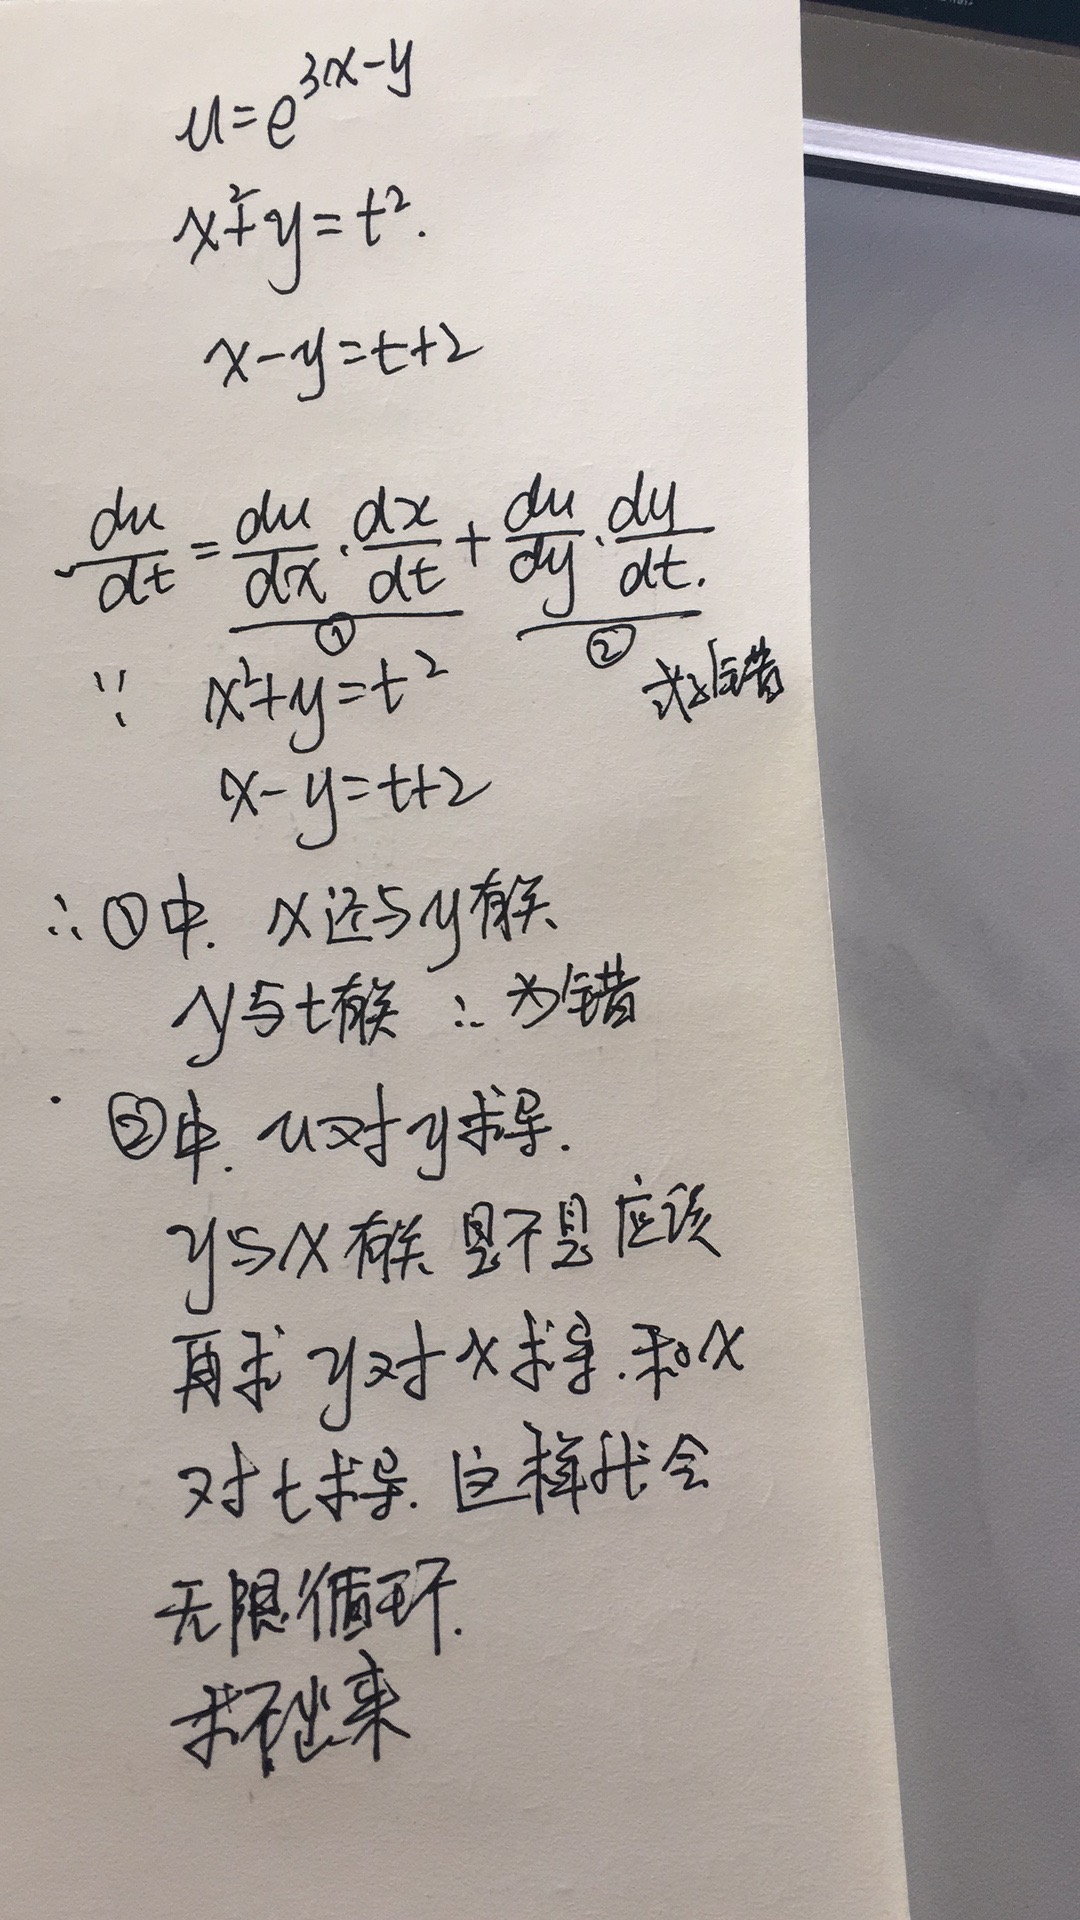 u=e^{3x-y}
x²+y=t².
x-y=t+2
du/dt=du/dx·dx/dt+du/dy·dy/dt.
① ②
∵ x²+y=t² 求错
x-y=t+2
∴①中. x还与y有关
y与t有关 ∴为错
②中. u对y求导.
y与x有关 是不是应该
再求 y对x求导.和x
对t求导.这样代会
无限循环.
求不出来